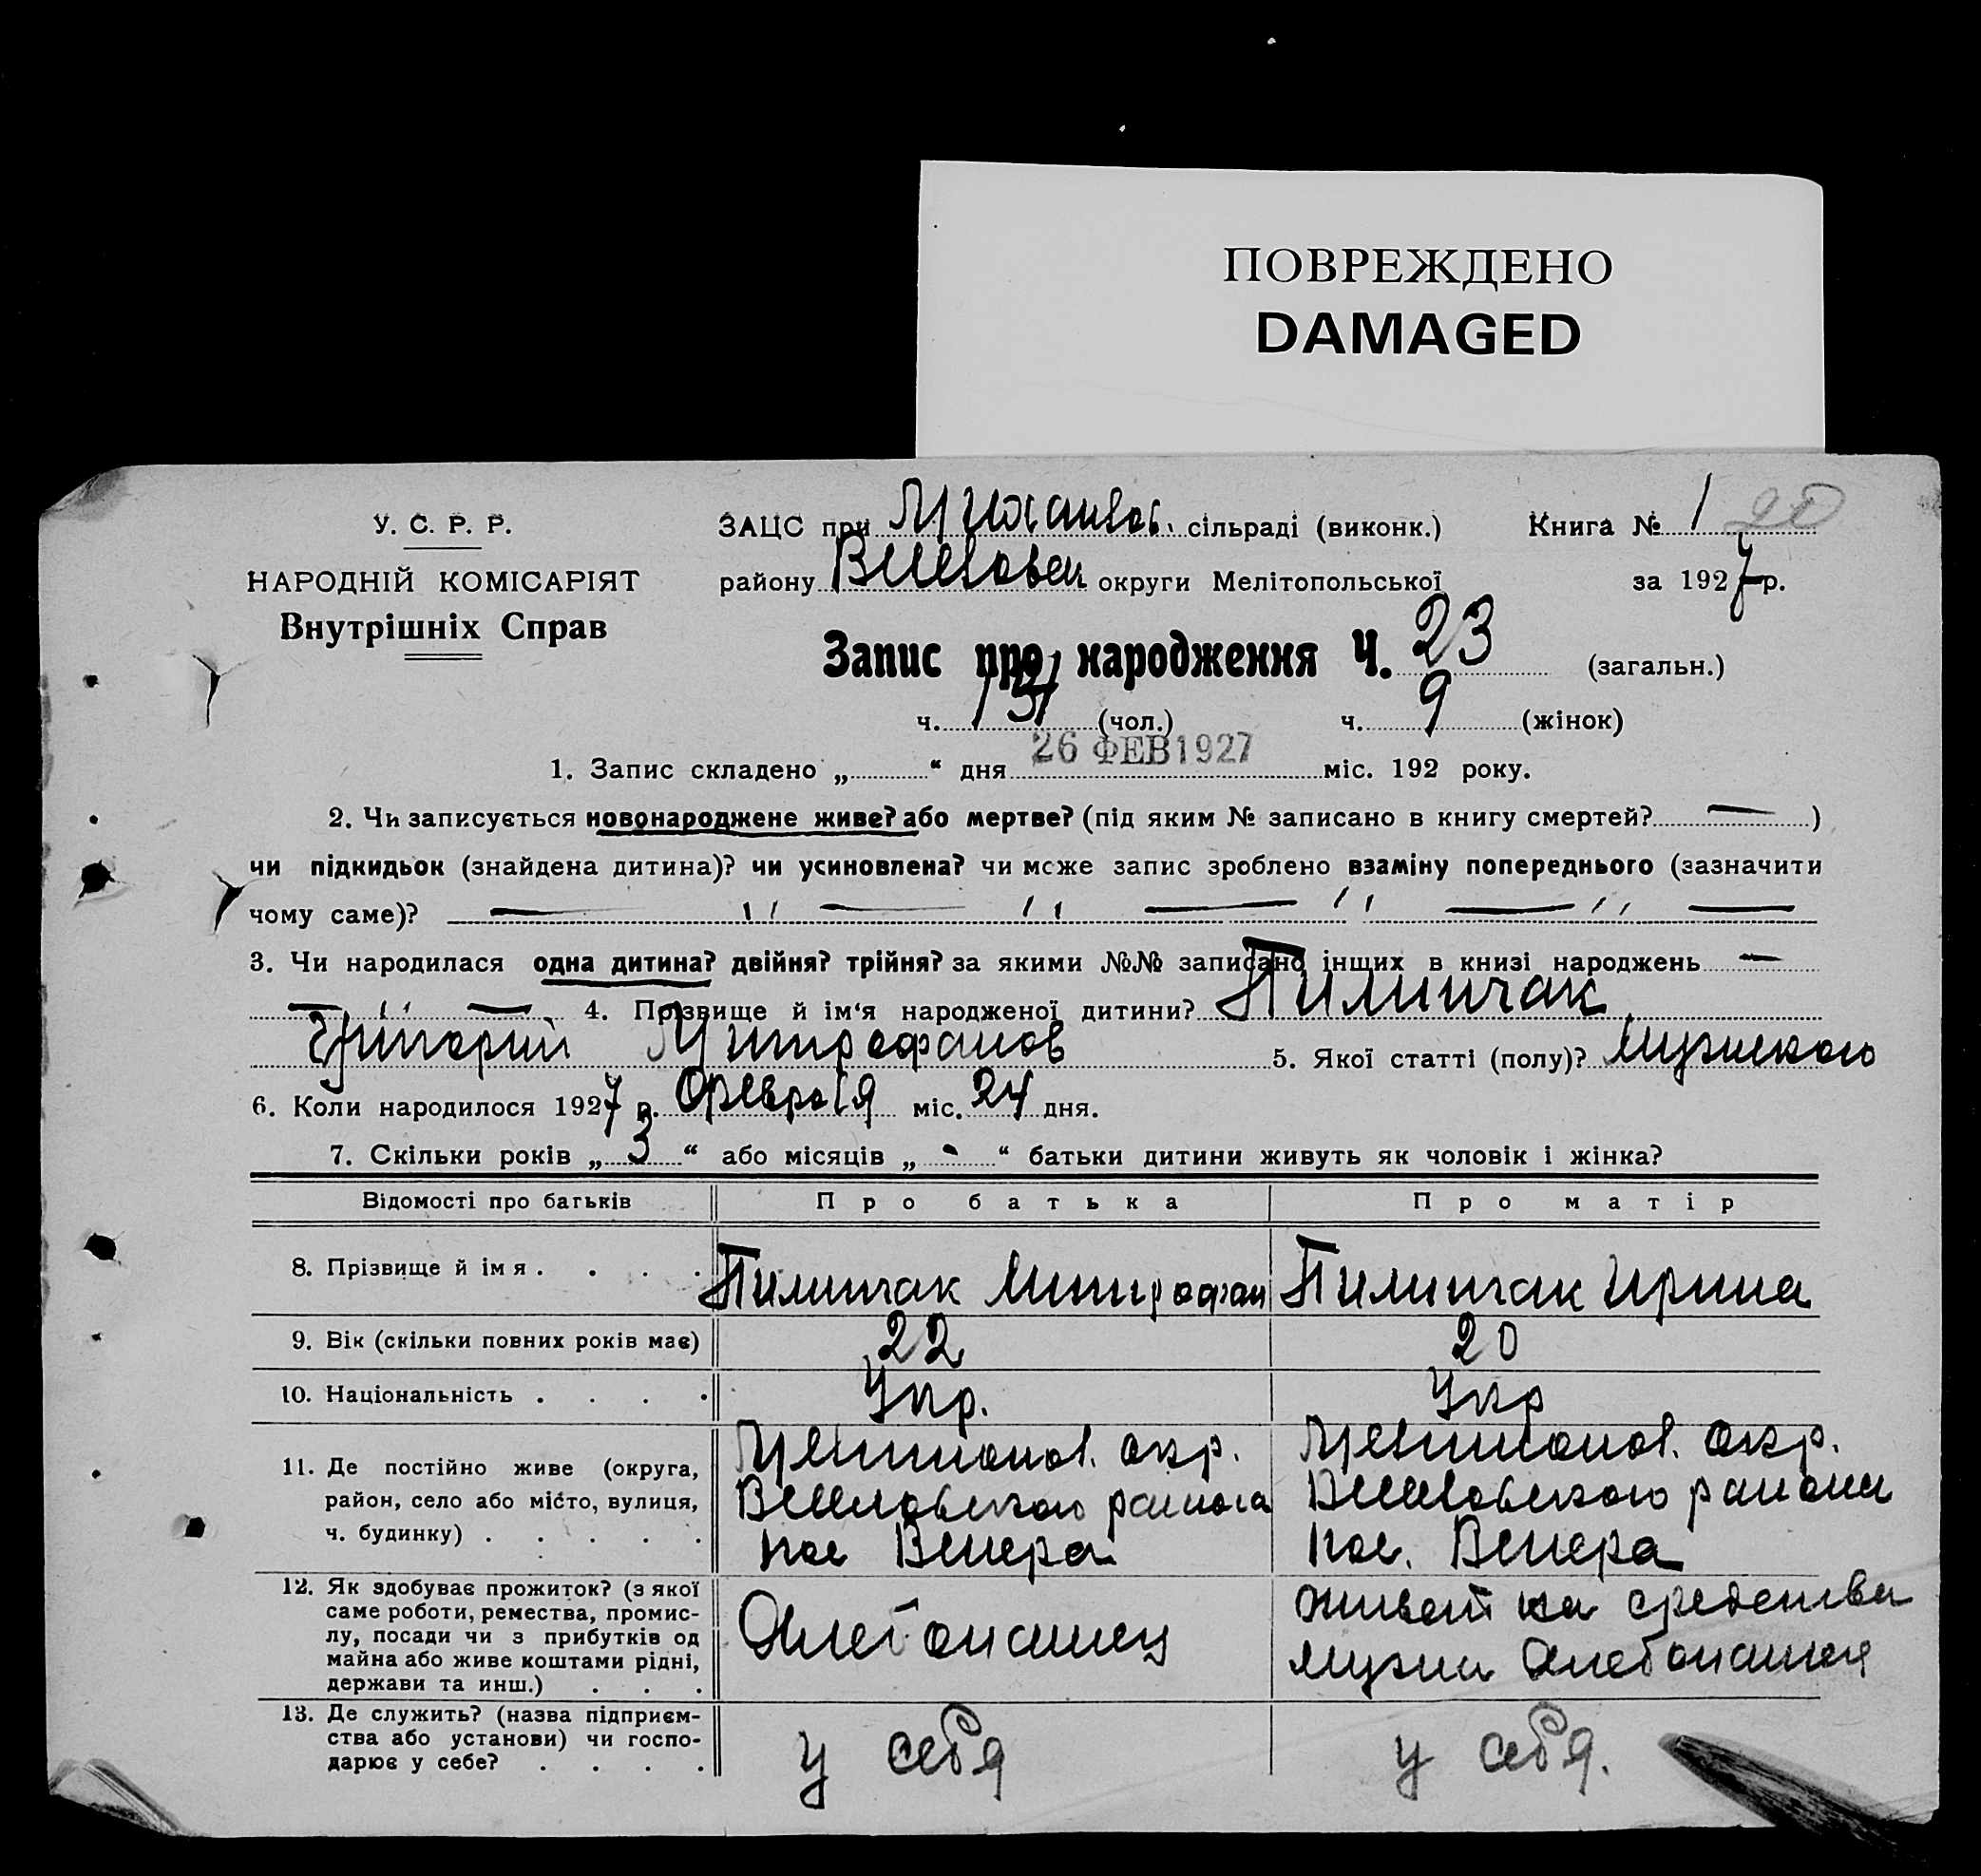 ПОВРЕЖДЕНО
DAMAGED
У. С. Р. Р.
НАРОДНІЙ КОМІСАРІЯТ
Внутрішніх Справ
ЗАЦС при Михайлов. сільраді (виконк.) Книга № 1 20
району округи Мелітопольської за 1927 р.
Запис про народження Ч. 23 (загальн.)
ч. (чол.) ч. 9 (жінок)
26 ФЕВ 1927
1. Запис складено „ “ дня міс. 192 року.
2. Чи записується новонароджене живе? або мертве? (під яким № записано в книгу смертей? — )
чи підкидьок (знайдена дитина)? чи усиновлена? чи може запис зроблено взаміну попереднього (зазначити
чому саме)? — " — " — " — " —
3. Чи народилася одна дитина? двійня? трійня? за якими №№ записано інших в книзі народжень —
— " — 4. Прізвище й ім‘я народженої дитини? Пилипчак
Григорий Митрофанов 5. Якої статті (полу)? Мужского
6. Коли народилося 1927 р. Февраля міс. 24 дня.
7. Скільки років „ 3 “ або місяців „ - “ батьки дитини живуть як чоловік і жінка?
Відомості про батьків Про батька Про матір
8. Прізвище й імя . . . . Пилипчак Митрофан Пилипчак Ирина
9. Вік (скільки повних років має) 22 20
10. Національність . . . . Укр. Укр
11. Де постійно живе (округа,
район, село або місто, вулиця,
ч. будинку) . . . . .
окр.
района
пос Венера
окр.
района
пос. Венера
12. Як здобуває прожиток? (з якої
саме роботи, ремества, промис-
лу, посади чи з прибутків од
майна або живе коштами рідні,
держави та инш.) . . .
Хлебопашец
живет на средства
мужа Хлебопашца
13. Де служить? (назва підприєм-
ства або установи) чи госпо-
дарює у себе? . . . .
у себя
у себя.